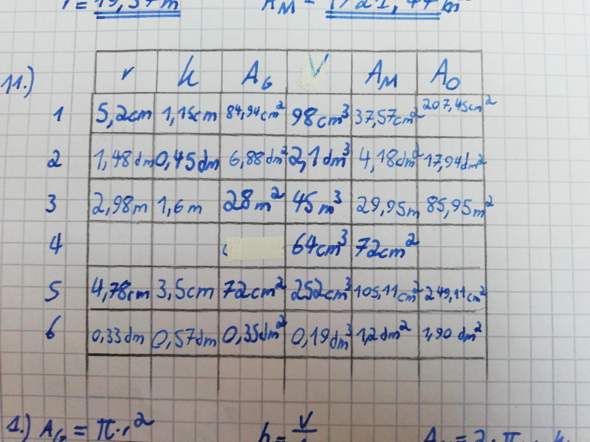 r = 19,57m A_M = 1721,44 m
11.) r h A_G V A_M A_O
1 5,2cm 1,15cm 84,94cm² 98cm³ 37,57cm² 207,45cm²
2 1,48dm 0,45dm 6,88dm² 2,1dm³ 4,18dm² 17,94dm²
3 2,98m 1,6m 28m² 45m³ 29,95m 85,95m²
4 64cm³ 72cm²
5 4,78cm 3,5cm 72cm² 252cm³ 105,11cm² 249,11cm²
6 0,33dm 0,57dm 0,35dm² 0,19dm³ 1,2dm² 1,90dm²
1.) A_G = π·r² h = V